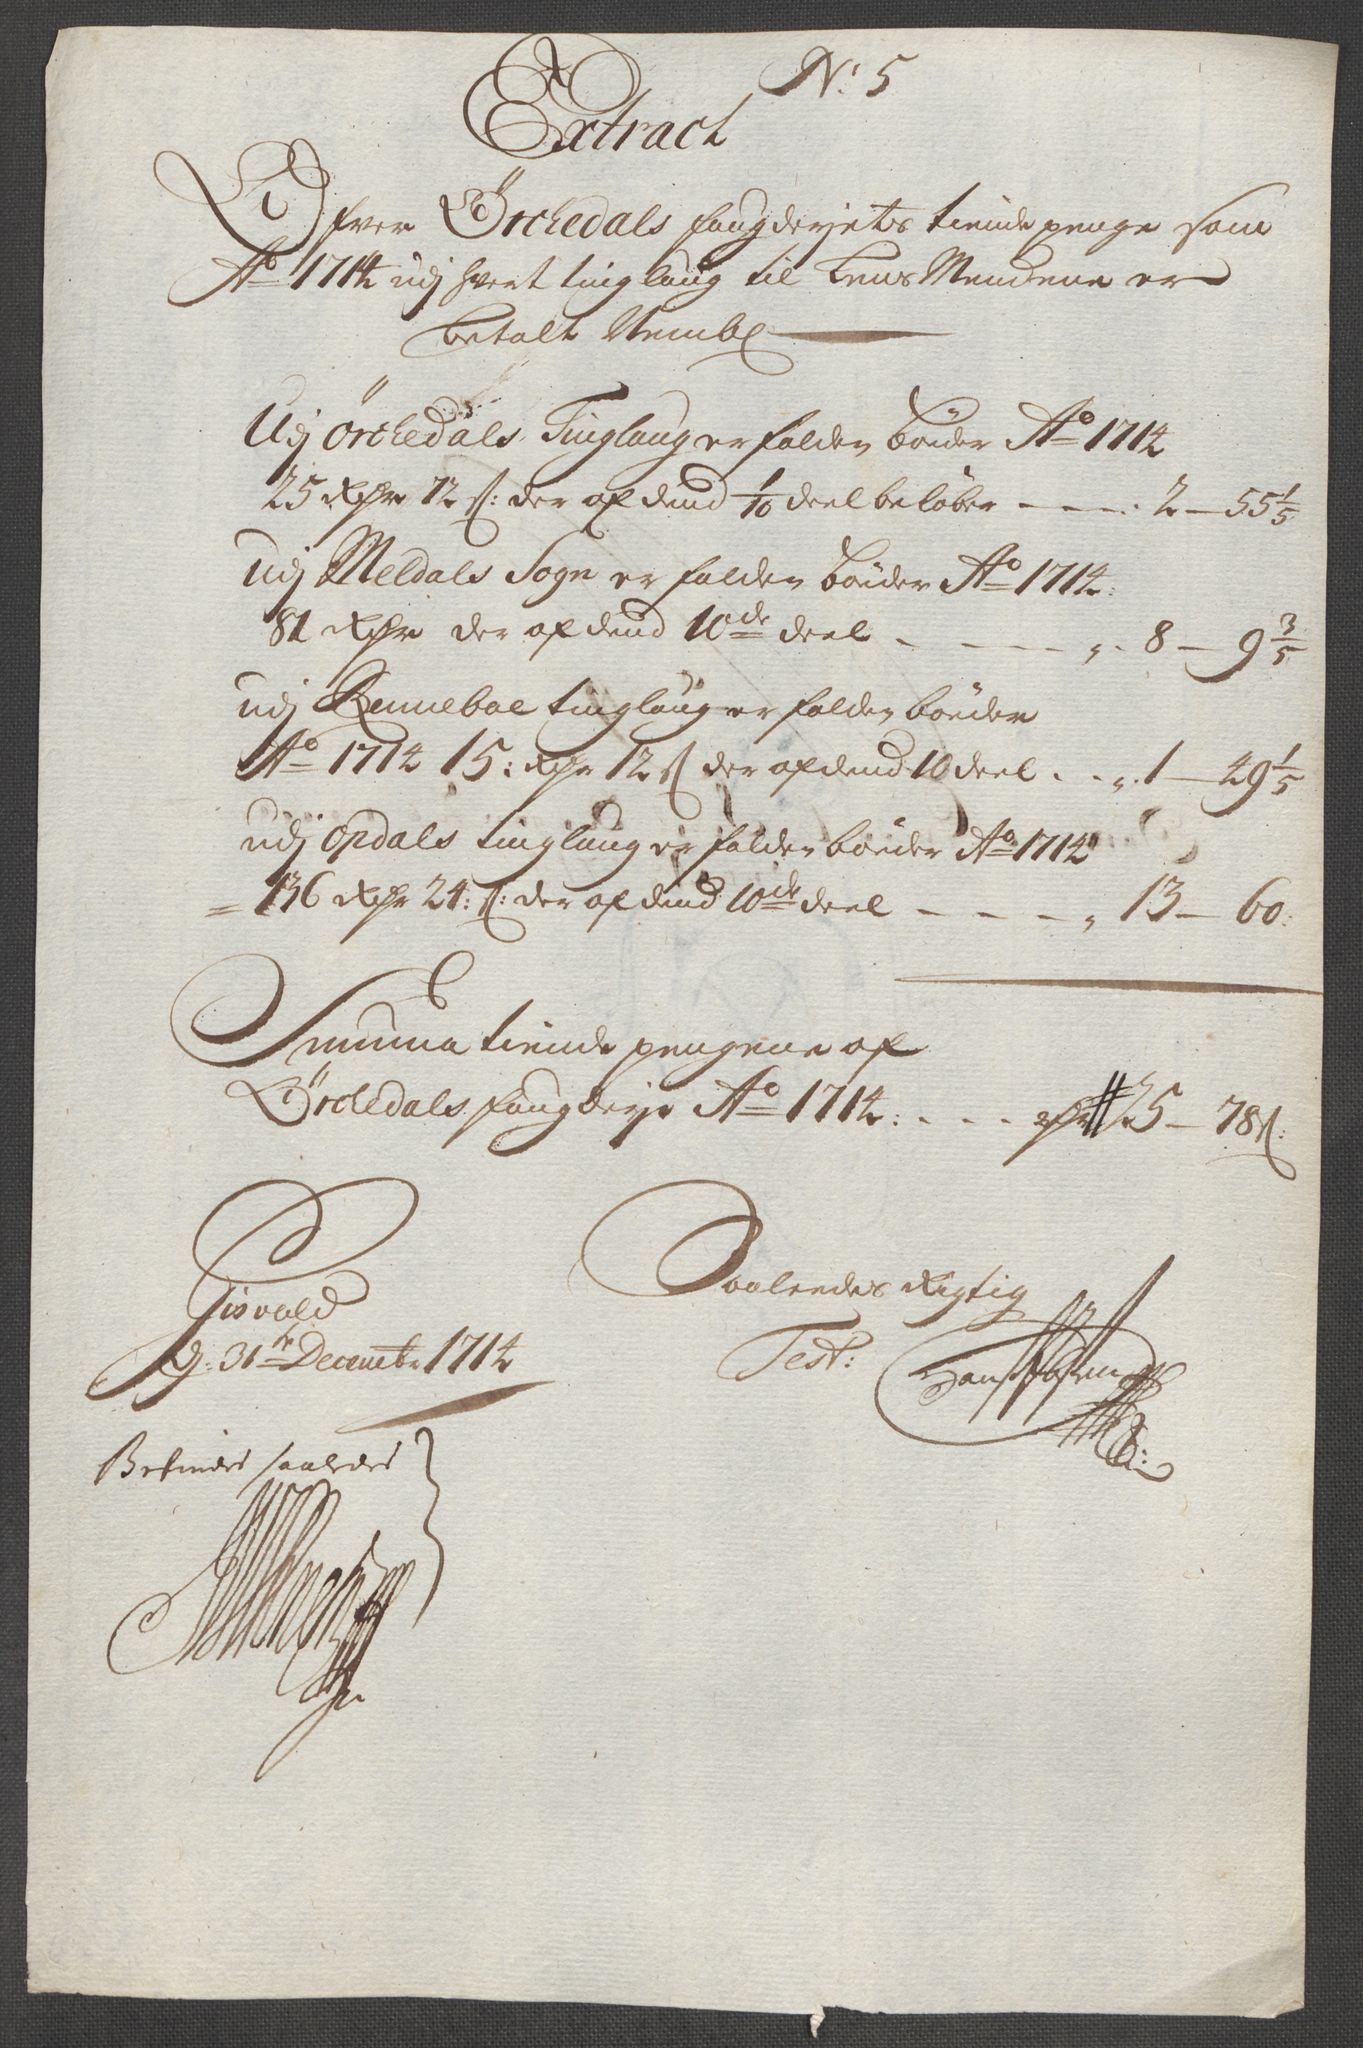 No: 5
Extract
Ofver Örchedals fougderjets tiende penge som
Ao 1714 udj hvert tinglaug til Lens Mendene er
betalt Nembl
Udj Örchedals Tinglaug er falden böder Ao 1714
25 Rdr 72 s: der af dend 1/10 deel beløber - - - . 2 — 55 1/5
Udj Meldals Sogn er falden böder Ao 1714:
81 Rdr der af dend 10de deel - - - - „ 8 — 9 3/5
udj Renneboe tinglaug er falden böeder
Ao 1714 15: Rdr 12 s der af dend 10 deel . - „ 1 — 49 1/5
udj Opdals tinglaug er falden böeder Ao 1714
= 136 Rdr 24: s: der af dend 10de deel - - - - „ 13 — 60:
Summa tiende pengene af
Örchedals fougderje Ao 1714: . - - - rdr 25 — 78 s:
Gisvald
d: 31te Decembr 1714
Saaledes Rigtig
Test:
Befindes saaledes